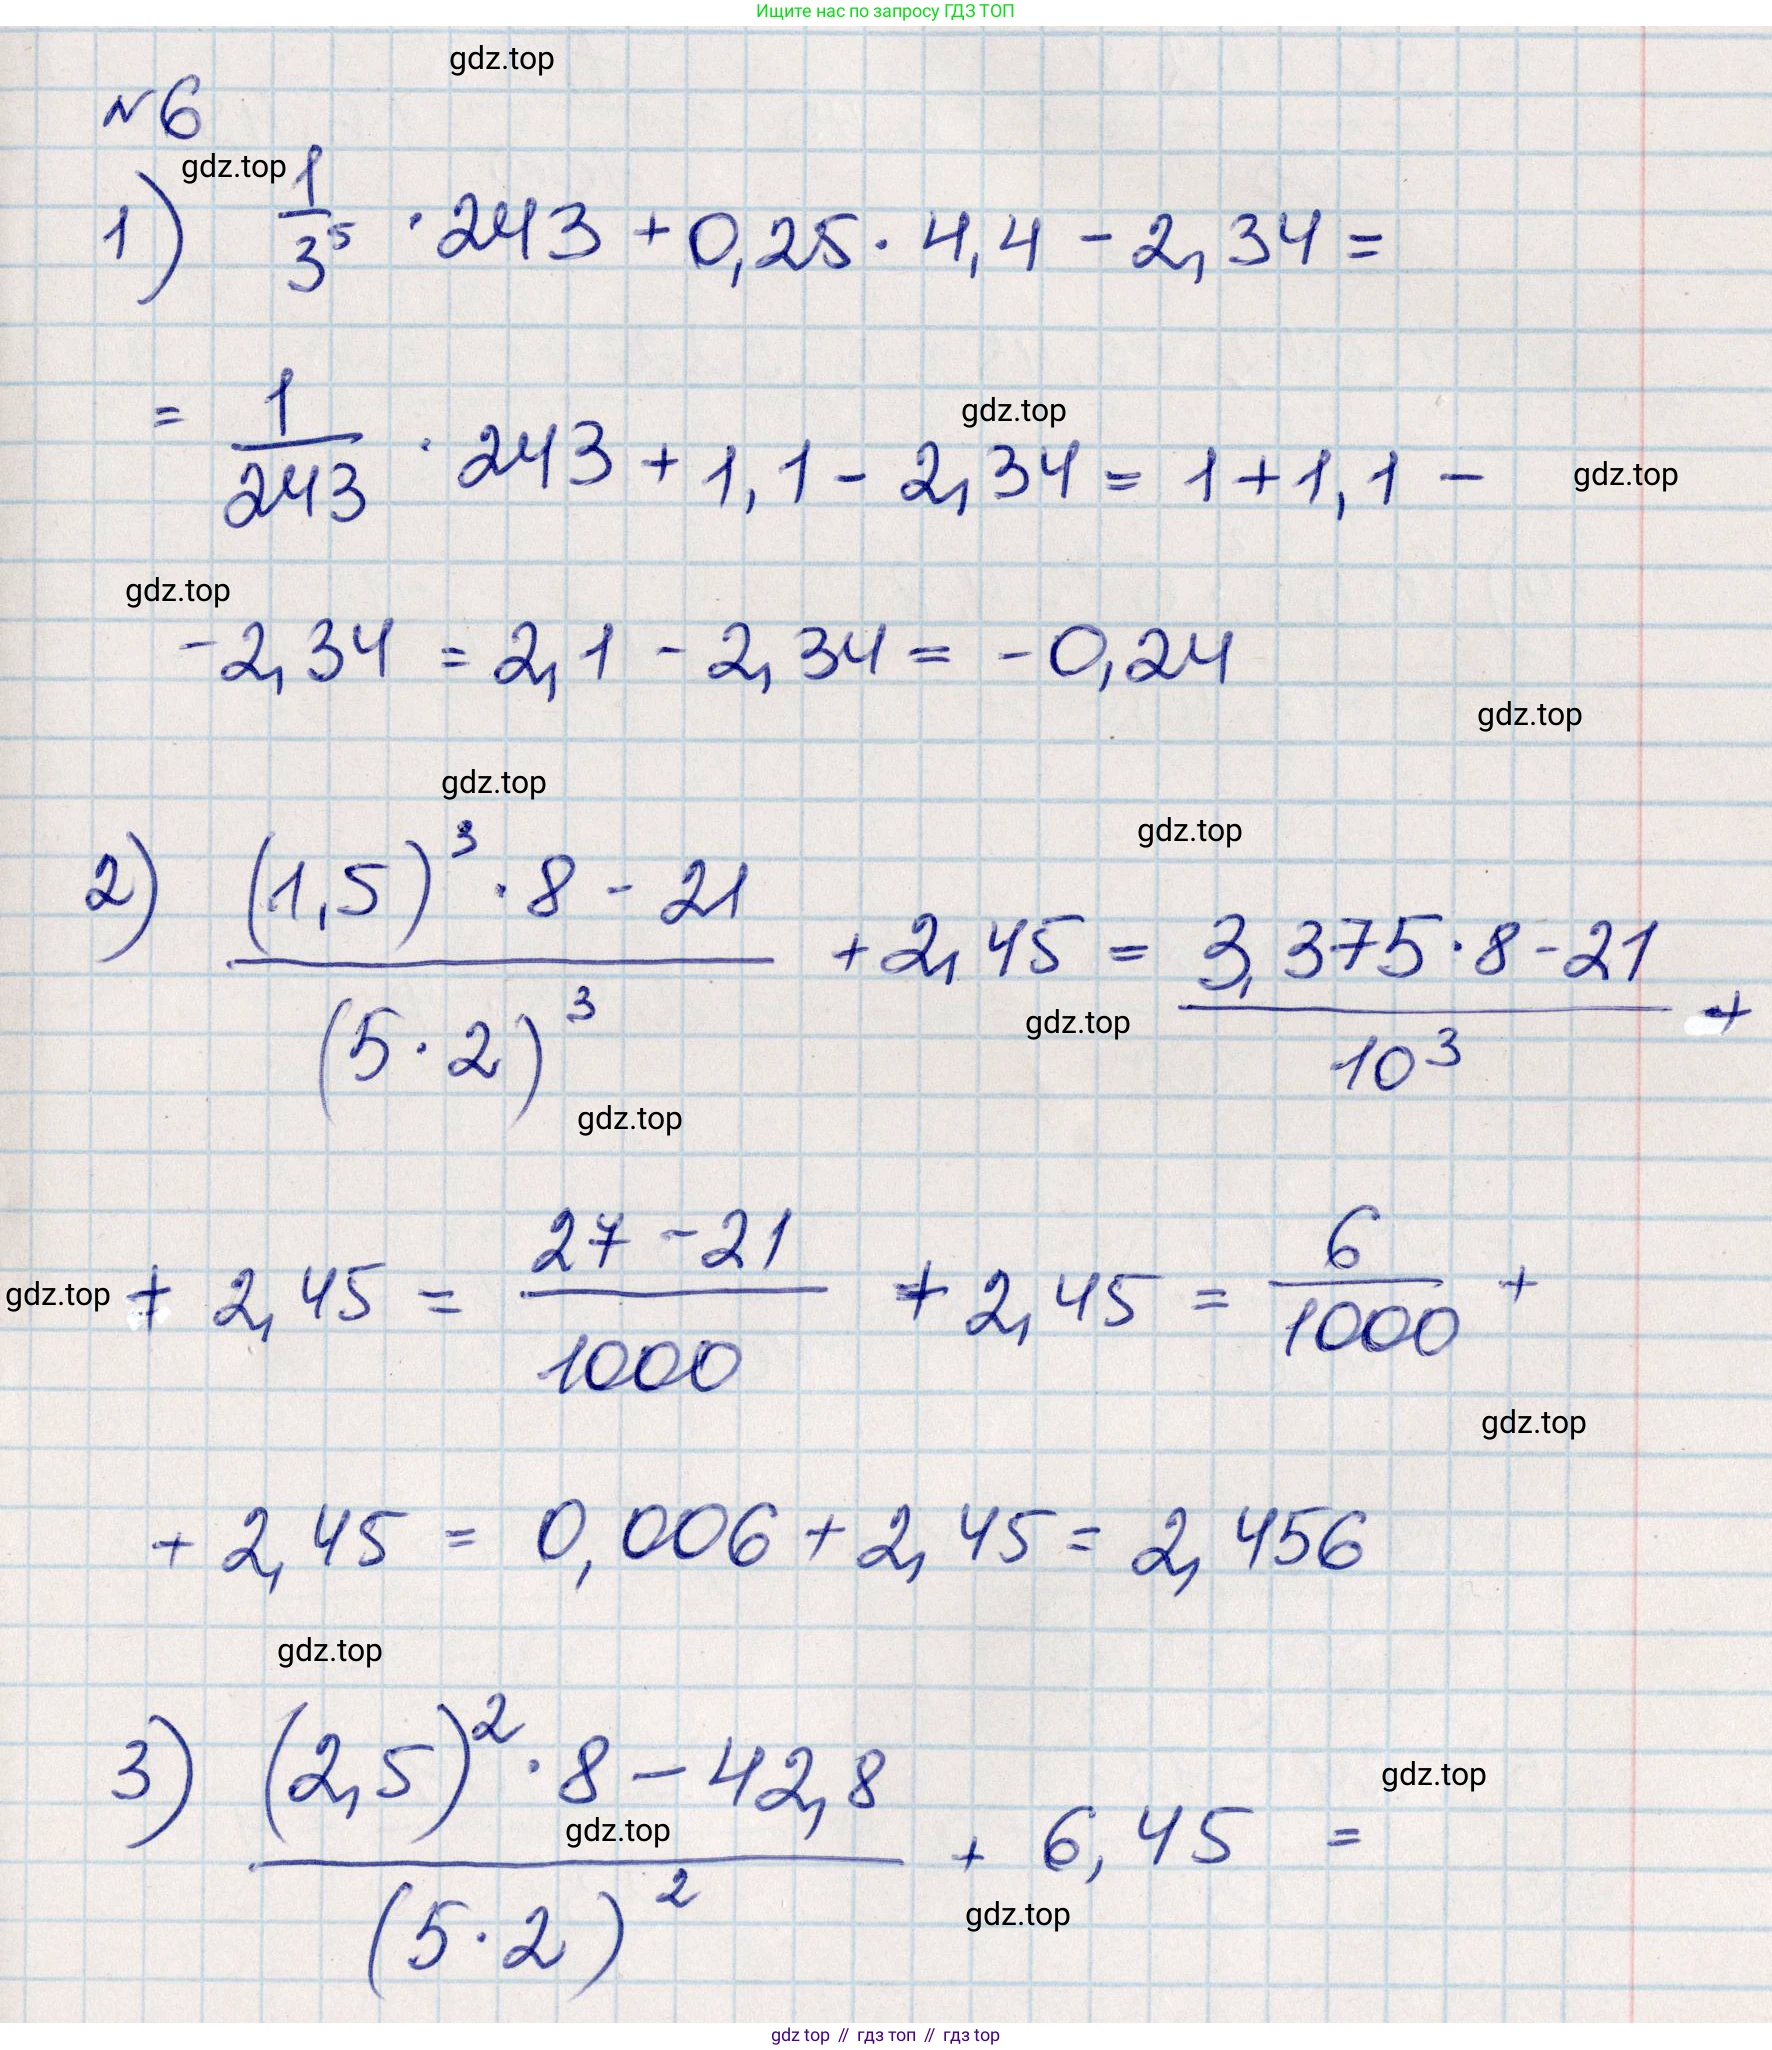 Ищите нас по запросу ГДЗ ТОП
gdz.top
№6
gdz.top
1) 1/3^5 · 243 + 0,25 · 4,4 - 2,34 =
gdz.top
= 1/243 · 243 + 1,1 - 2,34 = 1 + 1,1 -
gdz.top
gdz.top
-2,34 = 2,1 - 2,34 = -0,24
gdz.top
gdz.top
gdz.top
2) ((1,5)^3 · 8 - 21)/(5·2)^3 + 2,45 = (3,375·8-21)/10^3 +
gdz.top
gdz.top
gdz.top
+ 2,45 = (27-21)/1000 + 2,45 = 6/1000 +
gdz.top
+ 2,45 = 0,006 + 2,45 = 2,456
gdz.top
3) ((2,5)^2 · 8 - 42,8)/(5·2)^2 + 6,45 =
gdz.top
gdz.top
gdz.top
gdz top // гдз топ // гдз top